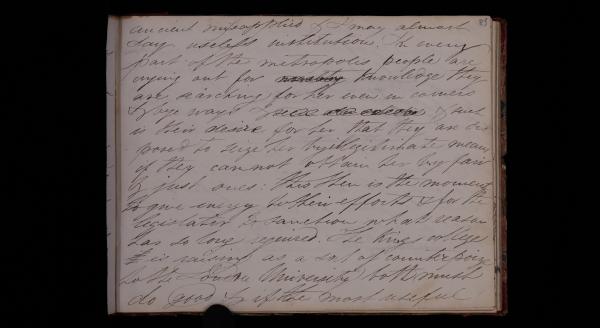 83
ancient misapplied & I may almost
say useless institutions. In every
part of the metropolis people are
crying out for knowledge they
are searching for her even in corners
& bye ways & such
is their desire for her that they are dis
posed to seize her by illegitimate means
if they cannot obtain her by fair
& just ones: this then is the moment
to give energy to their efforts & for the
legislator to sanction what reason
has so long required. The Kings college
is raising as a sort of counterpoise
to the London University both must
do good & if the most useful